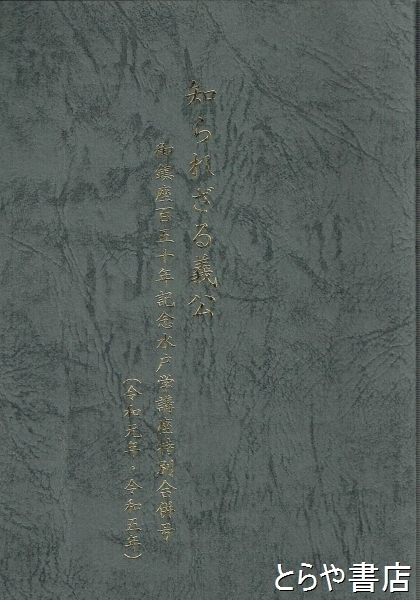 知られざる義公
御鎮座百五十年記念水戸学講座特別合併号
(令和元年・令和五年)
とらや書店